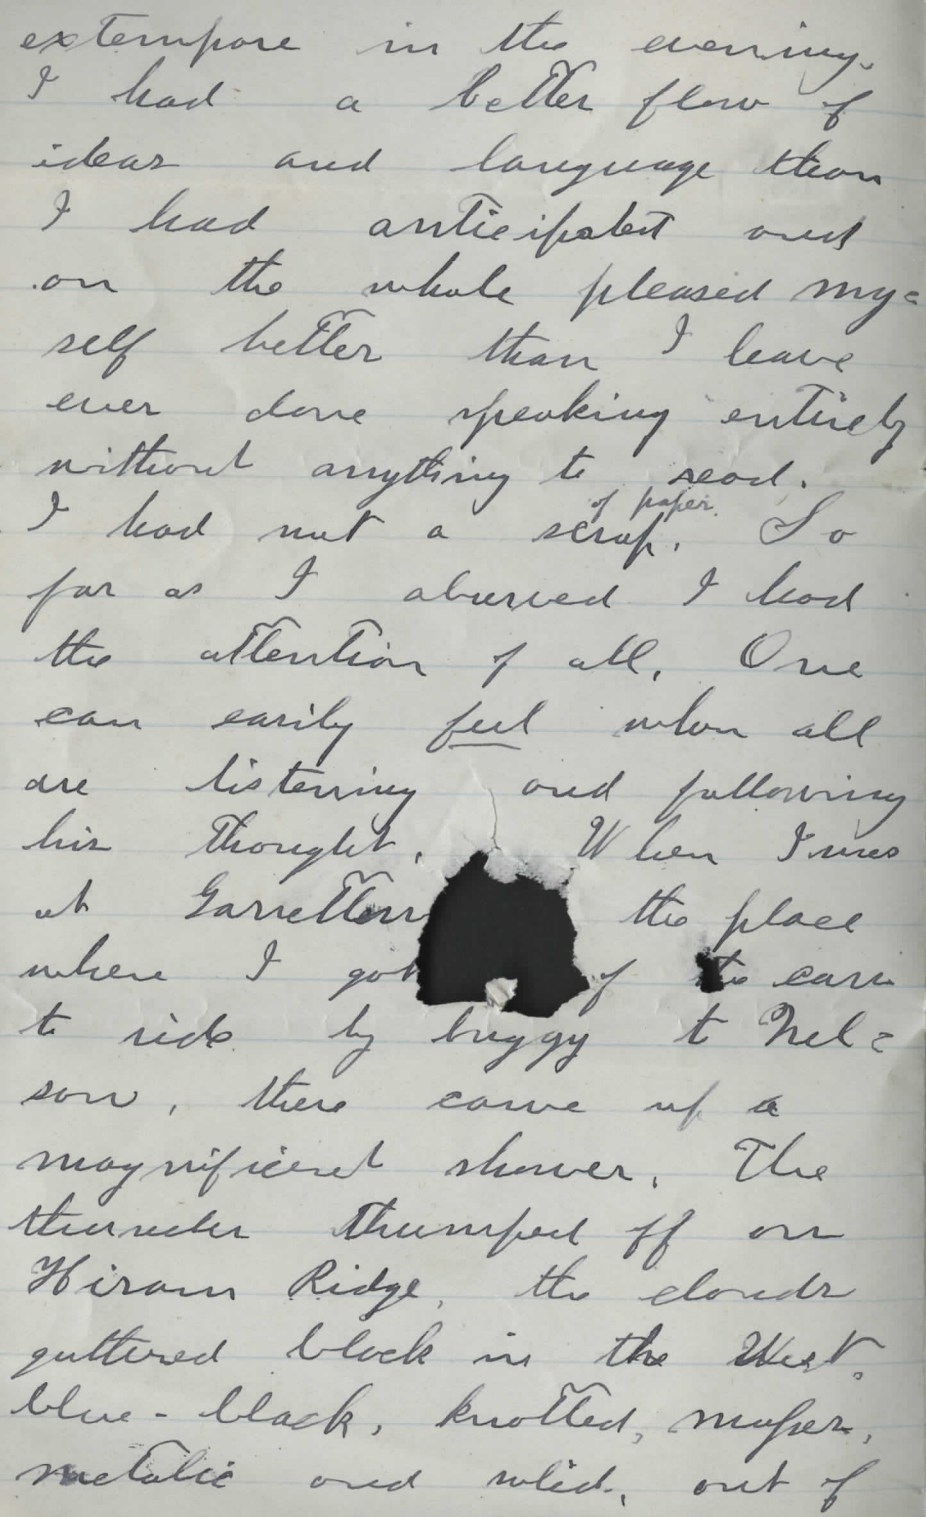 extempore in the evening.
I had a better flow of
ideas and language than
I had anticipated and
on the whole pleased my=
self better than I have
ever done speaking entirely
without anything to read.
of paper.
I had not a scrap. So
far as I observed I had
the attention of all. One
can easily feel when all
are listening and following
his thought. When I was
at the place
where I got of the cars
to ride by buggy to Nel=
son, there came up a
magnificent shower. The
thunder thumped off on
Hiram Ridge, the clouds
guttered black in the West.
blue-black, knotted,
metalic and solid, out of